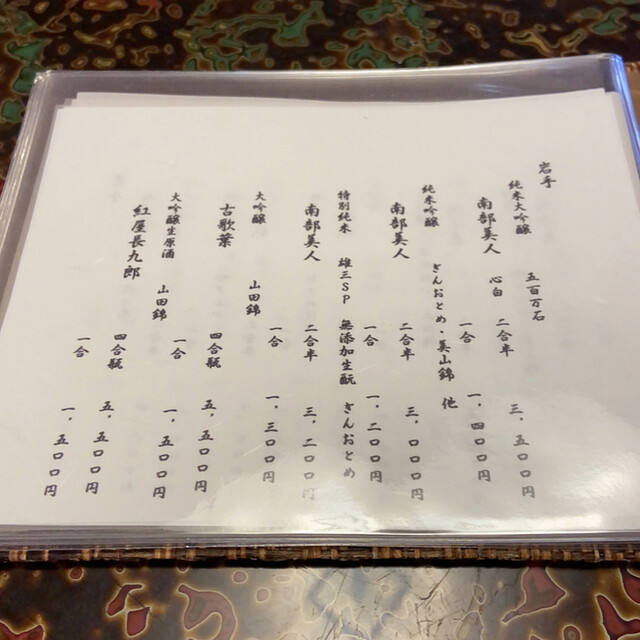 岩手
純米大吟醸　五百万石
南部美人　心白　二合半　三、五〇〇円
一合　一、四〇〇円
純米吟醸　ぎんおとめ・美山錦　他
南部美人　二合半　三、〇〇〇円
一合　一、二〇〇円
特別純米　雄三SP　無添加生酛　ぎんおとめ
南部美人　二合半　三、二〇〇円
一合　一、三〇〇円
大吟醸　山田錦
吉歌葉　四合瓶　五、五〇〇円
一合　一、五〇〇円
大吟醸生原酒　山田錦
紅屋長九郎　四合瓶　五、五〇〇円
一合　一、五〇〇円